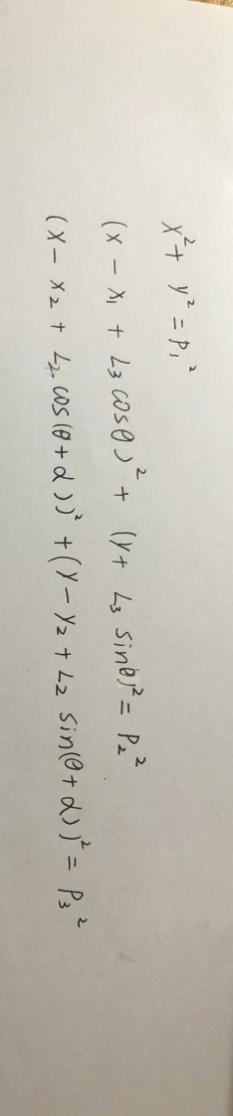 x² + y² = P₁²
(x - x₁ + L₃ cosθ)² + (y + L₃ sinθ)² = P₂²
(x - x₂ + L₂ cos(θ + α))² + (y - y₂ + L₂ sin(θ + α))² = P₃²